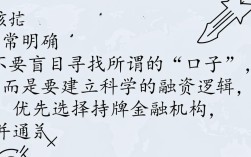 茫
常明确
不要盲目寻找所谓的“口子”,
而是要建立科学的融资逻辑,
优先选择持牌金融机构,
并通